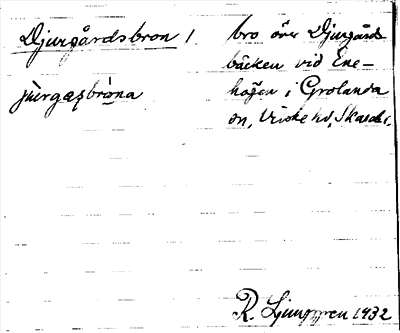 Djurgårdsbron 1 bro över Djurgårds
bäcken vid Ene-
hagen i Grolanda
sn, Vilske hd, Skarab.
R Ljunggren 1932